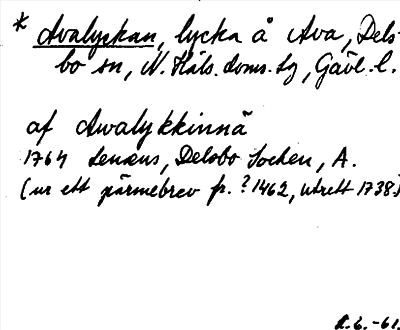 * Avalyckan, lycka å Ava, Dels-
bo sn, N. Häls. doms. sg, Gävl. l.
af Awalykkinnä
1764 Lenæus, Delsbo Socken, A.
(ur ett pärmebrev fr. ? 1462, utrett 1738)
-61.